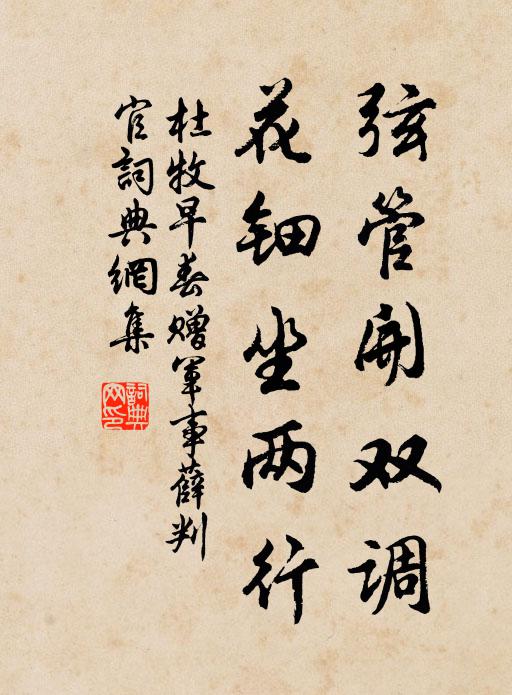 弦管开双调
花钿坐两行
杜牧早春赠军事薛判
官詞典網集
詞典
网印